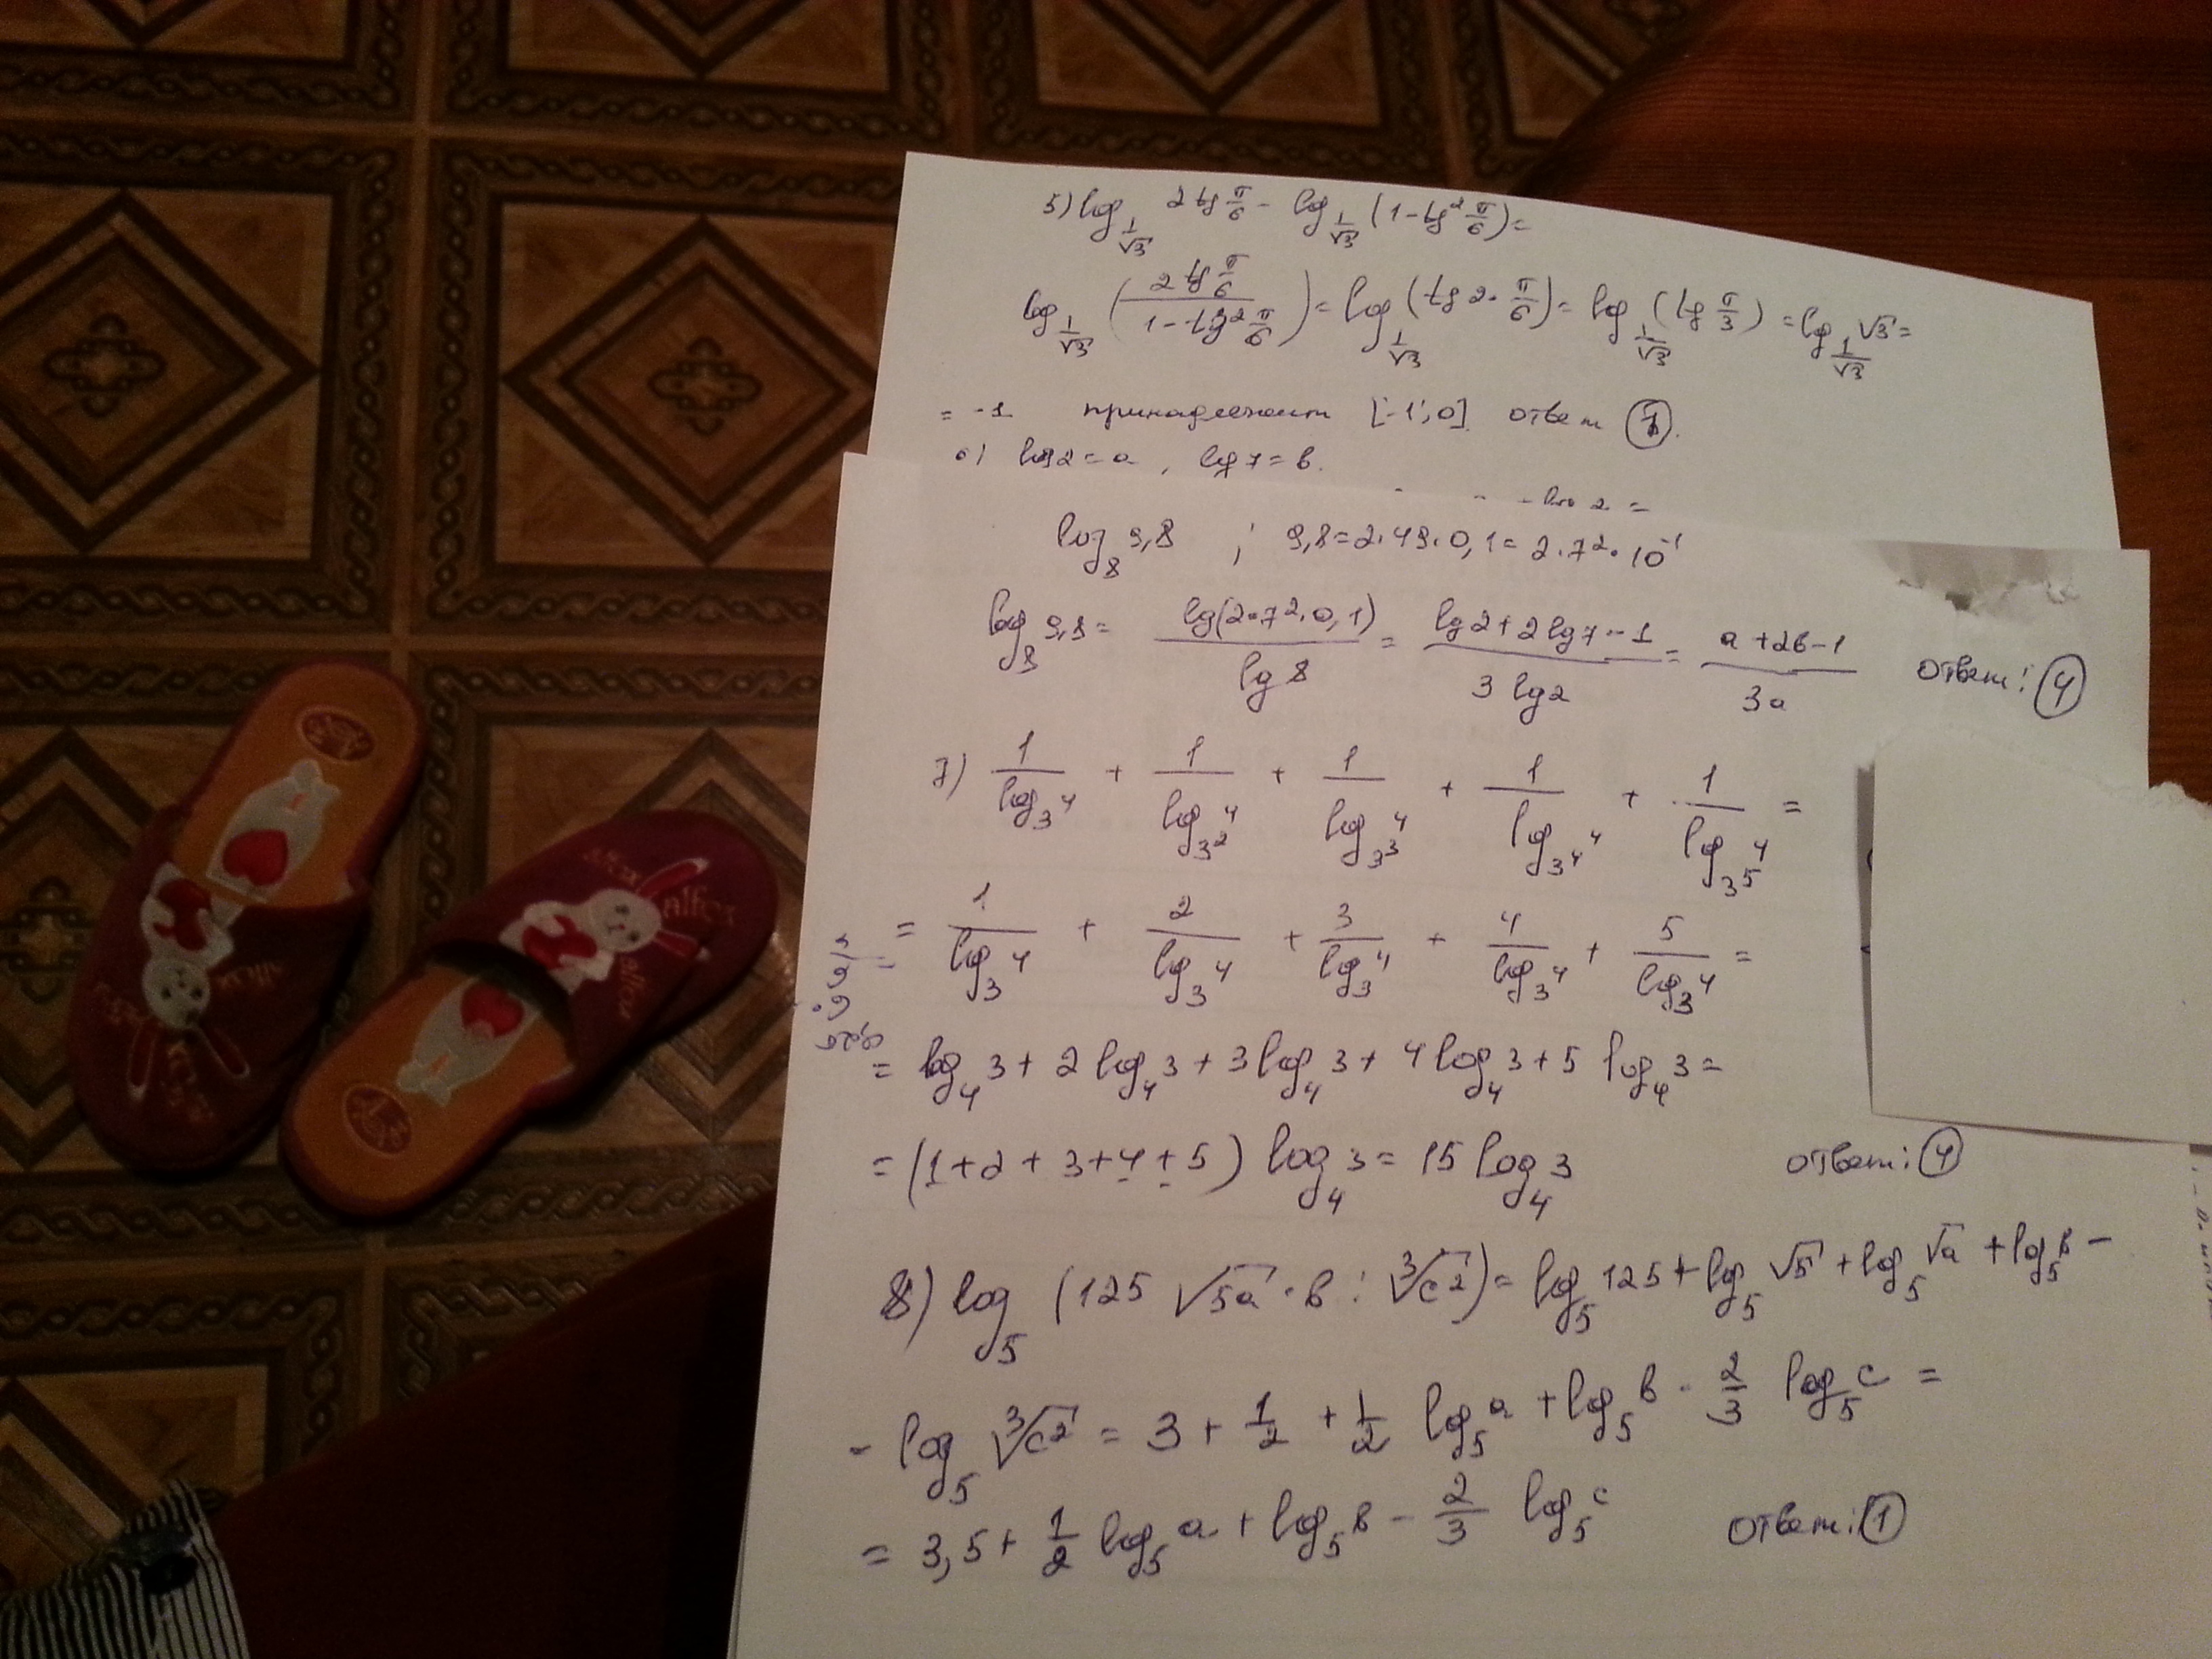 5) log_{1/√3} 2 tg π/6 - log_{1/√3} (1 - tg² π/6) =
log_{1/√3} (2 tg π/6 / (1 - tg² π/6)) = log_{1/√3} (tg 2 · π/6) = log_{1/√3} (tg π/3) = log_{1/√3} √3 =
= -1 принадлежит [-1; 0] ответ (1).
lg 2 = a, lg 7 = b.
2 =
log_8 9,8 ; 9,8 = 2·49·0,1 = 2·7²·10⁻¹
log_8 9,8 = lg(2·7²·0,1) / lg 8 = (lg 2 + 2 lg 7 - 1) / (3 lg 2) = (a + 2b - 1) / 3a ответ: (4)
7) 1/log_3 4 + 1/log_{3²} 4 + 1/log_{3³} 4 + 1/log_{3⁴} 4 + 1/log_{3⁵} 4 =
= 1/log_3 4 + 2/log_3 4 + 3/log_3 4 + 4/log_3 4 + 5/log_3 4 =
= log_4 3 + 2 log_4 3 + 3 log_4 3 + 4 log_4 3 + 5 log_4 3 =
= (1 + 2 + 3 + 4 + 5) log_4 3 = 15 log_4 3 ответ: (4)
8) log_5 (125 √5a · b : ∛c²) = log_5 125 + log_5 √5 + log_5 √a + log_5 b -
- log_5 ∛c² = 3 + 1/2 + 1/2 log_5 a + log_5 b - 2/3 log_5 c =
= 3,5 + 1/2 log_5 a + log_5 b - 2/3 log_5 c ответ: (1)